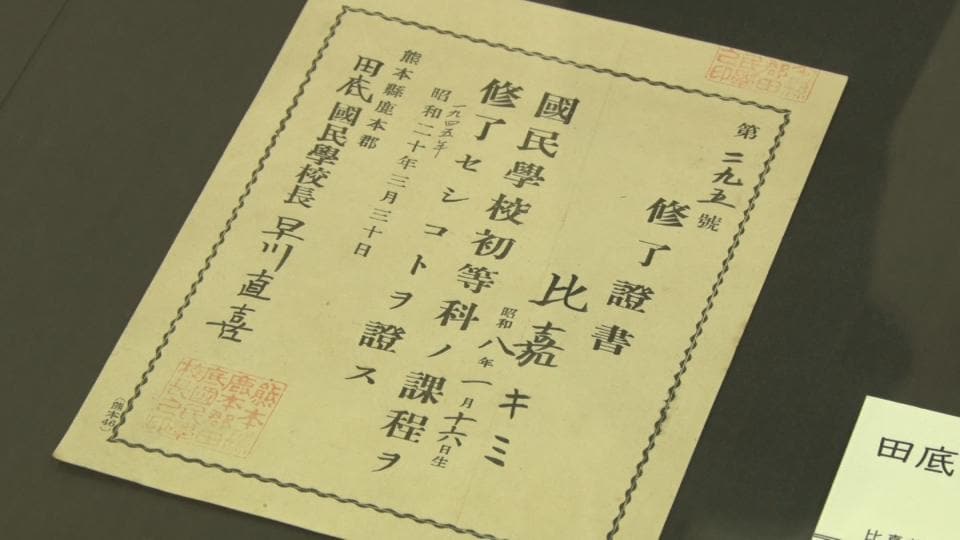 第二九五號
修了證書
比嘉キミ
昭和八年一月十六日生
國民學校初等科ノ課程ヲ
修了セシコトヲ證ス
一九四五年
昭和二十年三月三十日
熊本縣鹿本郡
田底國民學校長 早川直喜
熊本46
田底